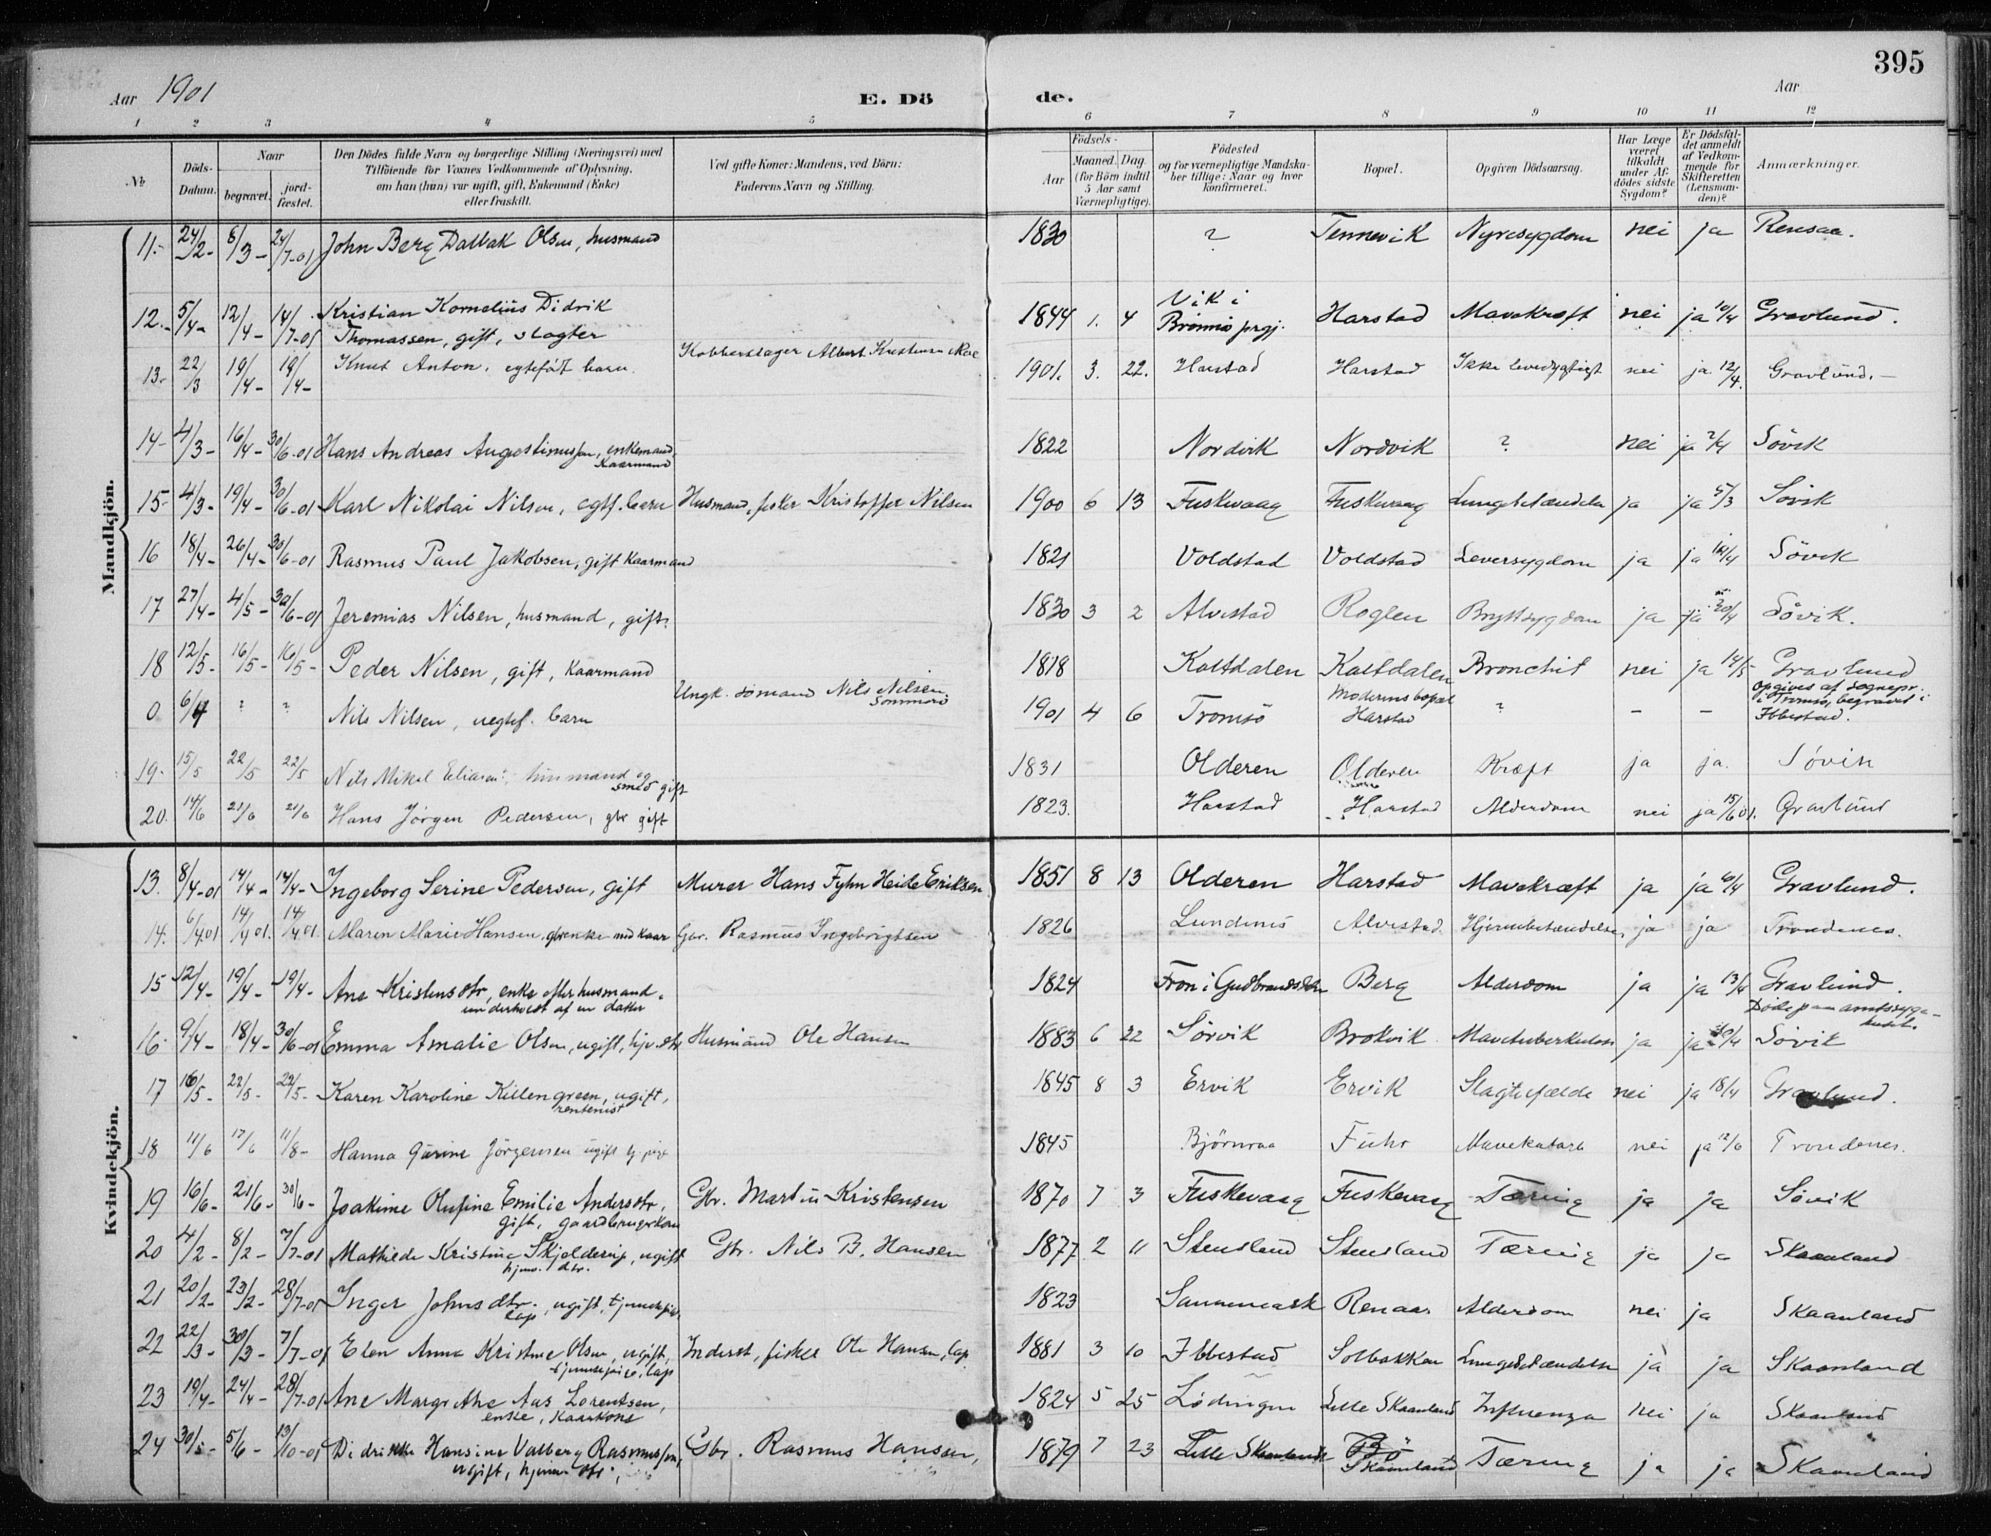 395
Aar 1901
E. Dö
de.
Aar
1 2 3 4 5 6 7 8 9 10 11 12
No
Döds-Datum.
Naar
begravet.
jord-fæstet.
Den Dödes fulde Navn og borgerlige Stilling (Næringsvei) med
Tilföiende for Voxnes Vedkommende af Oplysning,
om han (hun) var ugift, gift, Enkemand (Enke)
eller fraskilt.
Ved gifte Koner: Mandens, ved Börn:
Faderens Navn og Stilling.
Födsels-
Aar
Maaned. Dag.
(for Börn indtil
5 Aar samt
Værnepligtige).
Födested
og for værnepligtige Mandska-
ber tillige: Naar og hvor
konfirmeret.
Bopæl.
Opgiven Dödsaarsag.
Har Læge
været
tilkaldt
under Af-
dödes sidste
Sygdom?
Er Dödsfal-
det anmeldt
af Vedkom-
mende for
Skifteretten
(Lensman-
den)?
Anmærkninger.
Mandkjön.
11. 24/2 8/3 24/7-01 John Berg Dalbak Olsen, husmand 1830 ? Tennevik Nyresygdom nei ja Rensaa.
12. 5/4 12/4 14/7-01 Kristian Kornelius Didrik Thomassen, gift, slagter 1844 1. 4 Vik i Brønnø prgj. Harstad Mavekræft nei ja 10/4 Gravlund.
13. 22/3 19/4 19/4 Knut Anton, egtefødt barn. Kobberslager Albert Kristensen Moe 1901. 3. 22. Harstad Harstad Ikke levedygtigt nei ja 12/4. Gravlund.
14 4/3 16/4 30/6-01 Hans Andreas Augostinussen, enkemand, Kaarmand 1822 Nordvik Nordvik ? nei ja 2/4 Sövik
15 4/3 19/4 30/6-01 Karl Nikolai Nilsen, egtf. barn Husmand, fisker Kristoffer Nilsen 1900 6 13 Fuskevaag Fuskevaag Lungebetændelse ja ja 5/3 Sövik
16 18/4 26/4 30/6-01 Rasmus Paul Jakobsen, gift Kaarmand 1821 Voldstad Voldstad Leversygdom ja ja Sövik
17 27/4 4/5 30/6-01 Jeremias Nilsen, husmand, gift. 1830 3 2 Alvestad Roglen Brystsygdom ja ja 30/4 Sövik.
18 12/5 16/5 16/5 Peder Nilsen, gift, Kaarmand 1818 Kaltdalen Kaltdalen Bronchit nei ja 14/5 Gravlund
0 6/4 ? ? Nils Nilsen, uegtef. barn Ungk. sömand Nils Nilsen, Sommerö 1901 4 6 Tromsö Moderens bopæl Harstad ? - - Opgives af sognepr. i Tromsö, begravet i Ibbestad.
19. 15/5 22/5 22/5 Nils Mikal Eliasen, husmand og smed gift 1831 Olderen Olderen Kræft ja ja. Sövik
20. 14/6 21/6 21/6 Hans Jörgen Pedersen, gbr gift 1823. Harstad Harstad Alderdom nei ja 15/6 01. Gravlund
Kvindekjön.
13. 8/4-01 14/4 14/4 Ingeborg Serine Pedersen, gift Murer Hans Fyhn Heide Eriksen 1851 8 13 Olderen Harstad Mavekræft ja ja 6/4 Gravlund.
14. 6/4 01 14/4 01. 14/4 01. Maren Marie Hansen, gbrenke med kaar Gbr. Rasmus Ingebrigtsen 1826 Lundenes Alvestad. Hjernebetændelse, ja ja Trondenes.
15 12/4 19/4 19/4 Ane Kristensdtr, enke efter husmand. underholdt af en datter 1824 Fron i Gudbrandsdalen Berg Alderdom ja ja 13/4 Gravlund. Döde paa amtssygehuset.
16 9/4 18/4 30/6-01 Emma Amalie Olsen, ugift, hjv. dtr Husmand Ole Hansen 1883 6 22 Sörvik Brokvik Mavetuberkulose ja ja 30/4 Sövik
17 16/5 22/5 22/5 Karen Karoline Killengreen, ugift, rentenist 1845 8 3 Ervik Ervik Slagtilfælde nei ja 18/4 Gravlund.
18 11/6 17/6 11/8 Hanna Gurine Jörgensen ugift 1845 Bjørnraa Fuhr Mavekatarh nei ja 12/6 Trondenes.
19 16/6 21/6 30/6 Joakime Olufine Emilie Andersdtr, gift, gaardbrugerkone Gbr. Martin Kristensen 1870 7 3 Fuskevaag Fuskevaag Tæring ja ja Sövik
20 4/2 8/2 7/7-01 Mathilde Kristine Skjelderup, ugift hjmv. dtr. Gbr. Nils B. Hansen 1877 2 11 Stensland Stensland Tæring ja ja Skaanland
21 20/2 23/2 28/7-01 Inger Johnsdtr. lap, ugift, tjenestepige, 1823 Sannemark Renaas Alderdom nei ja Skaanland
22 22/3 30/3 7/7-01 Elen Anna Kristine Olsen, ugift, tjenestepige, lap Inderst, fisker Ole Hansen, lap 1881 3 10 Ibbestad Solbakken Lungebetændelse ja ja Skaanland
23 19/4 24/4 28/7-01 Ane Margrethe Aas Lorentsen, enke, Kaarkone 1824 5 25 Lödingen Lille Skaanland Influenza nei ja Skaanland
24 30/5 5/6 13/10-01 Didrikke Hansine Valberg Rasmussen, ugift, hjemv. dtr. Gbr. Rasmus Hansen, 1879 7 23 Lille Skaanland Skaanland Tæring ja ja Skaanland